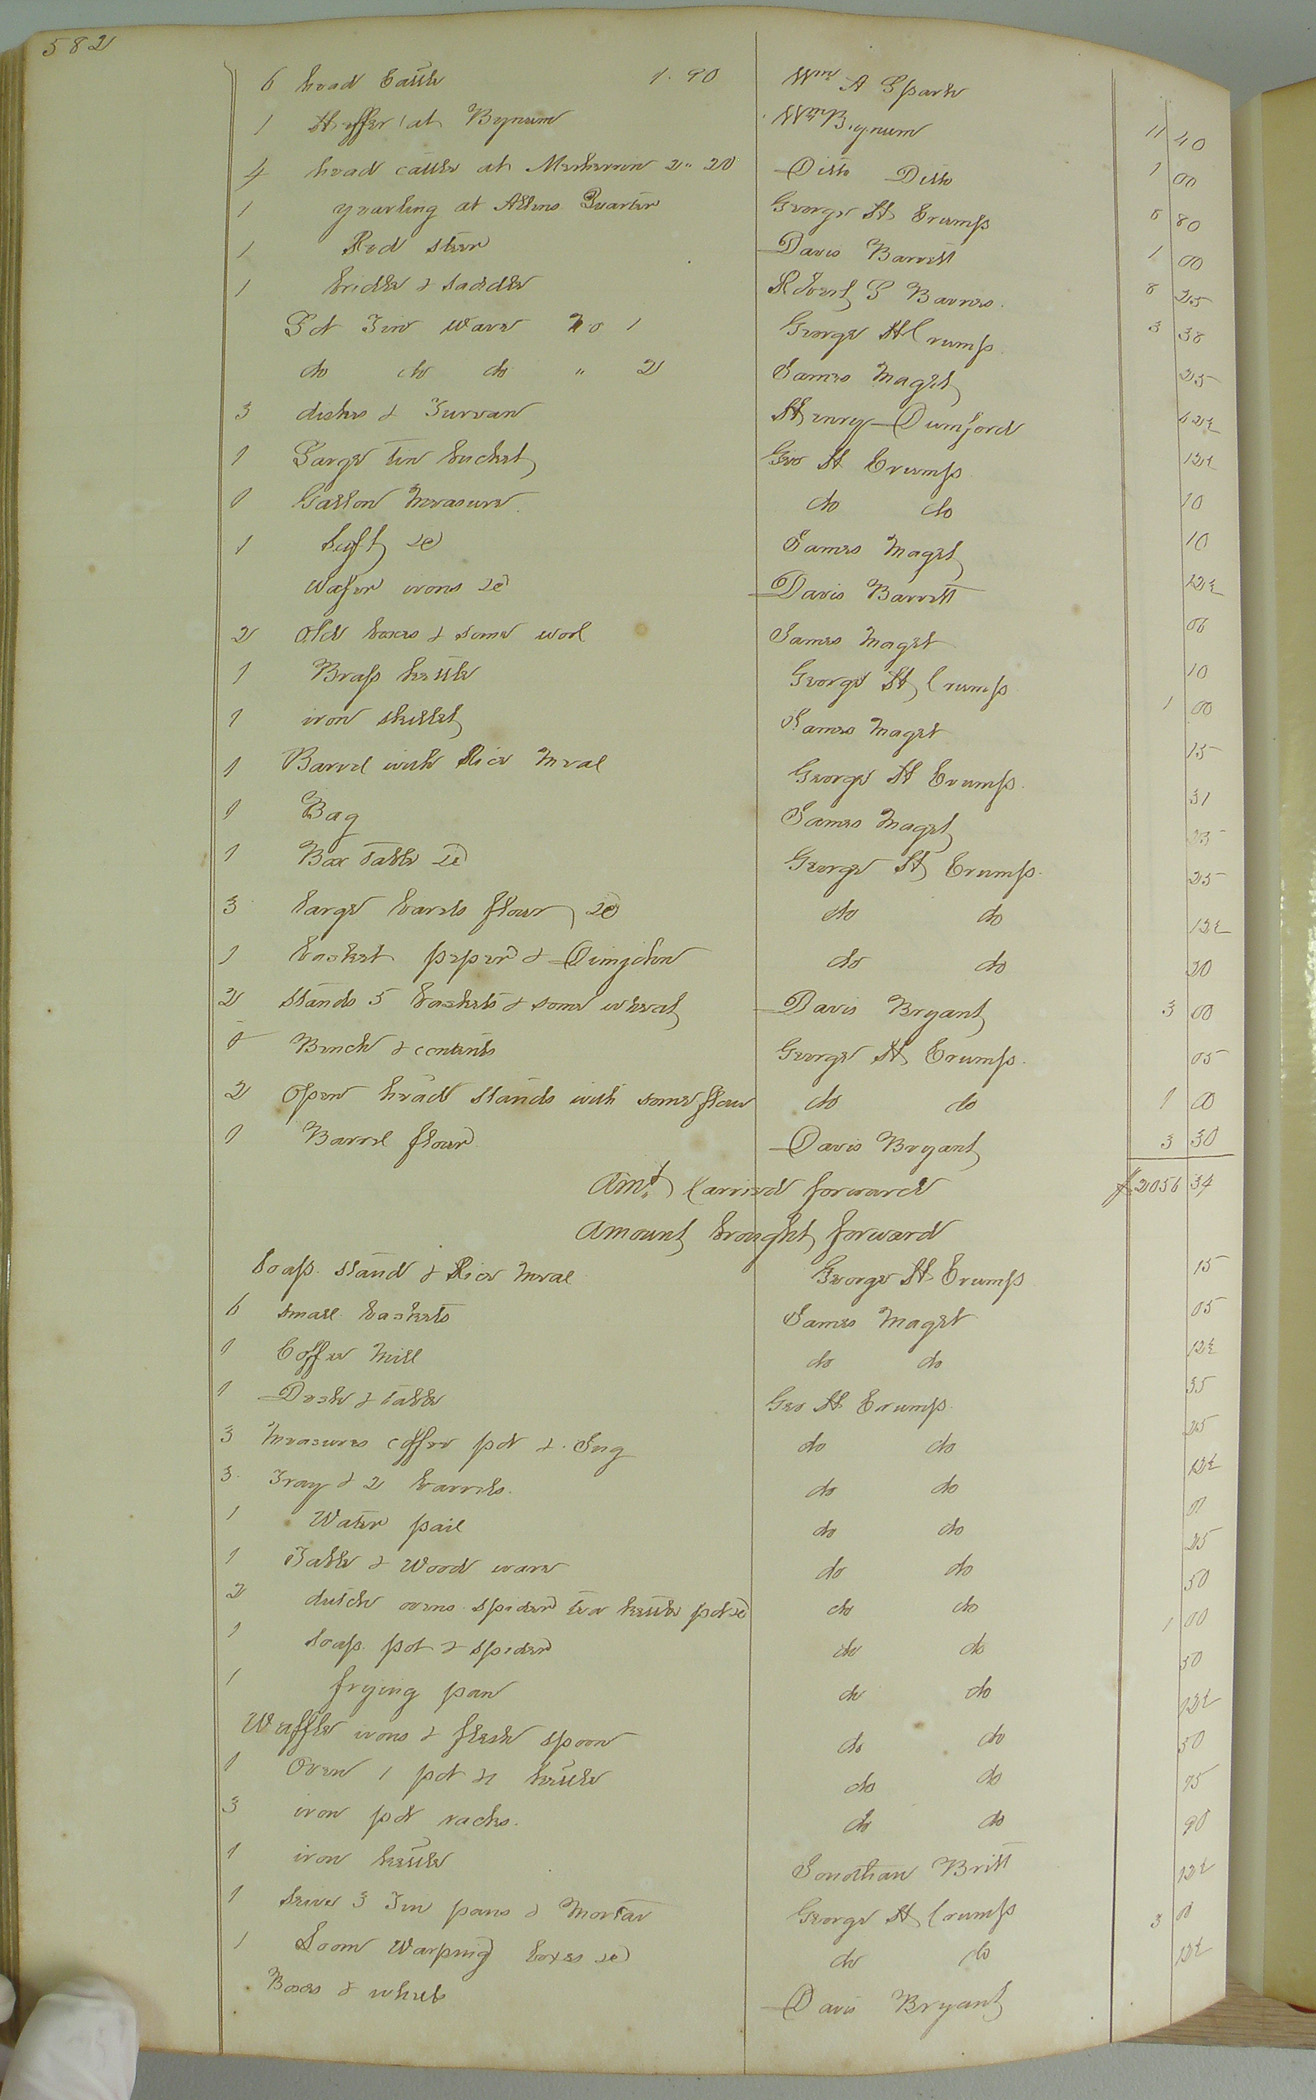 582
6 head Cattle 1.90 Wm A Spark 11 40
1 Heffer at Bynum Wm Bynum 1 00
4 head cattle at Meherron 2" 20 Ditto Ditto 8 80
1 yearling at Allens Quarter George H Crump 1 00
1 Red steer Davis Barrett 8 25
1 bridle & saddle Robert S Barnes 3 38
Lot Tin Ware No 1 George H Crump 25
do do do " 2 James Maget 42½
3 dishes & Turean Henry Dumford 12½
1 Large tin bucket Geo H Crump 10
1 Gallon Measure do do 10
1 Sift &c James Maget 12½
Wafer irons &c Davis Barrett 06
2 Old boxes & some wool James Maget 10
1 Brass kettle George H Crump 1 00
1 iron skillet James Maget 15
1 Barrel with Rice Meal George H Crump 31
1 Bag James Maget 25
1 Box Table &c George H Crump 25
3 large barrels flour &c do do 12½
1 basket peper & do do 20
2 stands 5 baskets & some wheat Davis Bryant 3 00
1 Bench & contents George H Crump 05
2 Open head stands with some flour do do 1 00
1 Barrel flour Davis Bryant 3 30
Amt. Carried forward $2056 34
Amount brought forward
Soap stand & Rice Meal George H Crump 15
6 small baskets James Maget 05
1 Coffee Mill do do 12½
1 Desk & table Geo H Crump 35
3 Measures coffee pot & Jug do do 25
3 Tray & 2 barrels do do 12½
1 Water pail do do
1 Table & Wood ware do do 25
2 dutch ovens spider tea kettle pot &c do do 50
1 soap pot & spider do do 1 00
1 frying pan do do 50
Waffle irons & flesh spoon do do 12½
1 Oven 1 pot & kettle do do 50
3 iron pot racks do do 75
1 iron kettle Jonathan Britt 90
1 Seive 3 Tin pans & Mortar George H Crump 12½
1 Loom Warping boxes &c do do 3
Boxes & wheels Davis Bryant 12½